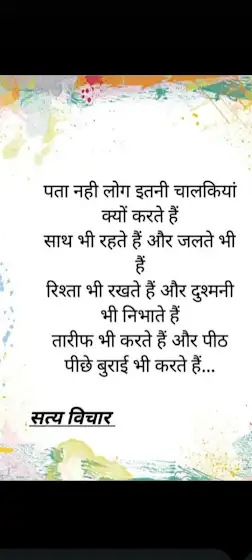 पता नही लोग इतनी चालकियां
क्यों करते हैं
साथ भी रहते हैं और जलते भी
हैं
रिश्ता भी रखते हैं और दुश्मनी
भी निभाते हैं
तारीफ भी करते हैं और पीठ
पीछे बुराई भी करते हैं...
सत्य विचार